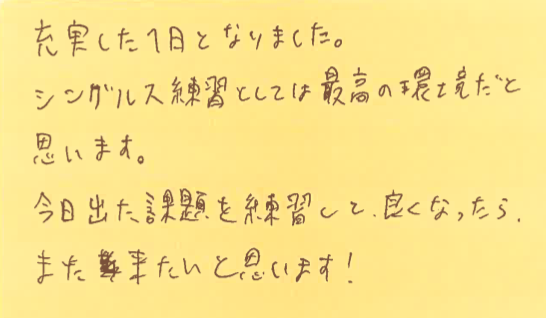 充実した1日となりました。
シングルス練習としては最高の環境だと
思います。
今日出た課題を練習して、良くなったら、
また来たいと思います!